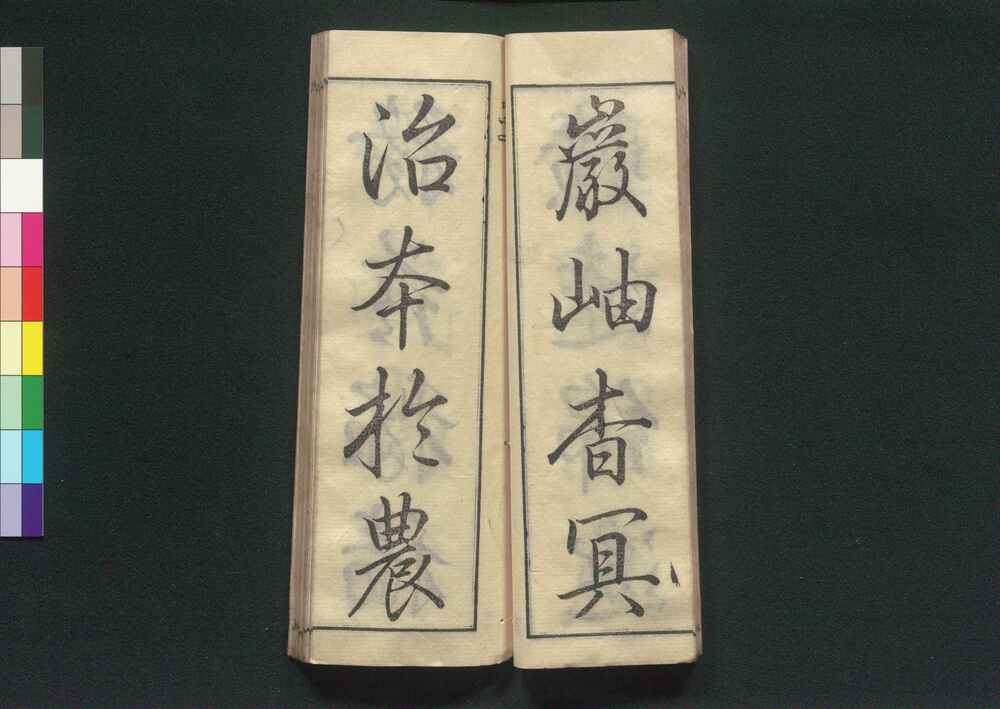 巖岫杳冥
治本於農